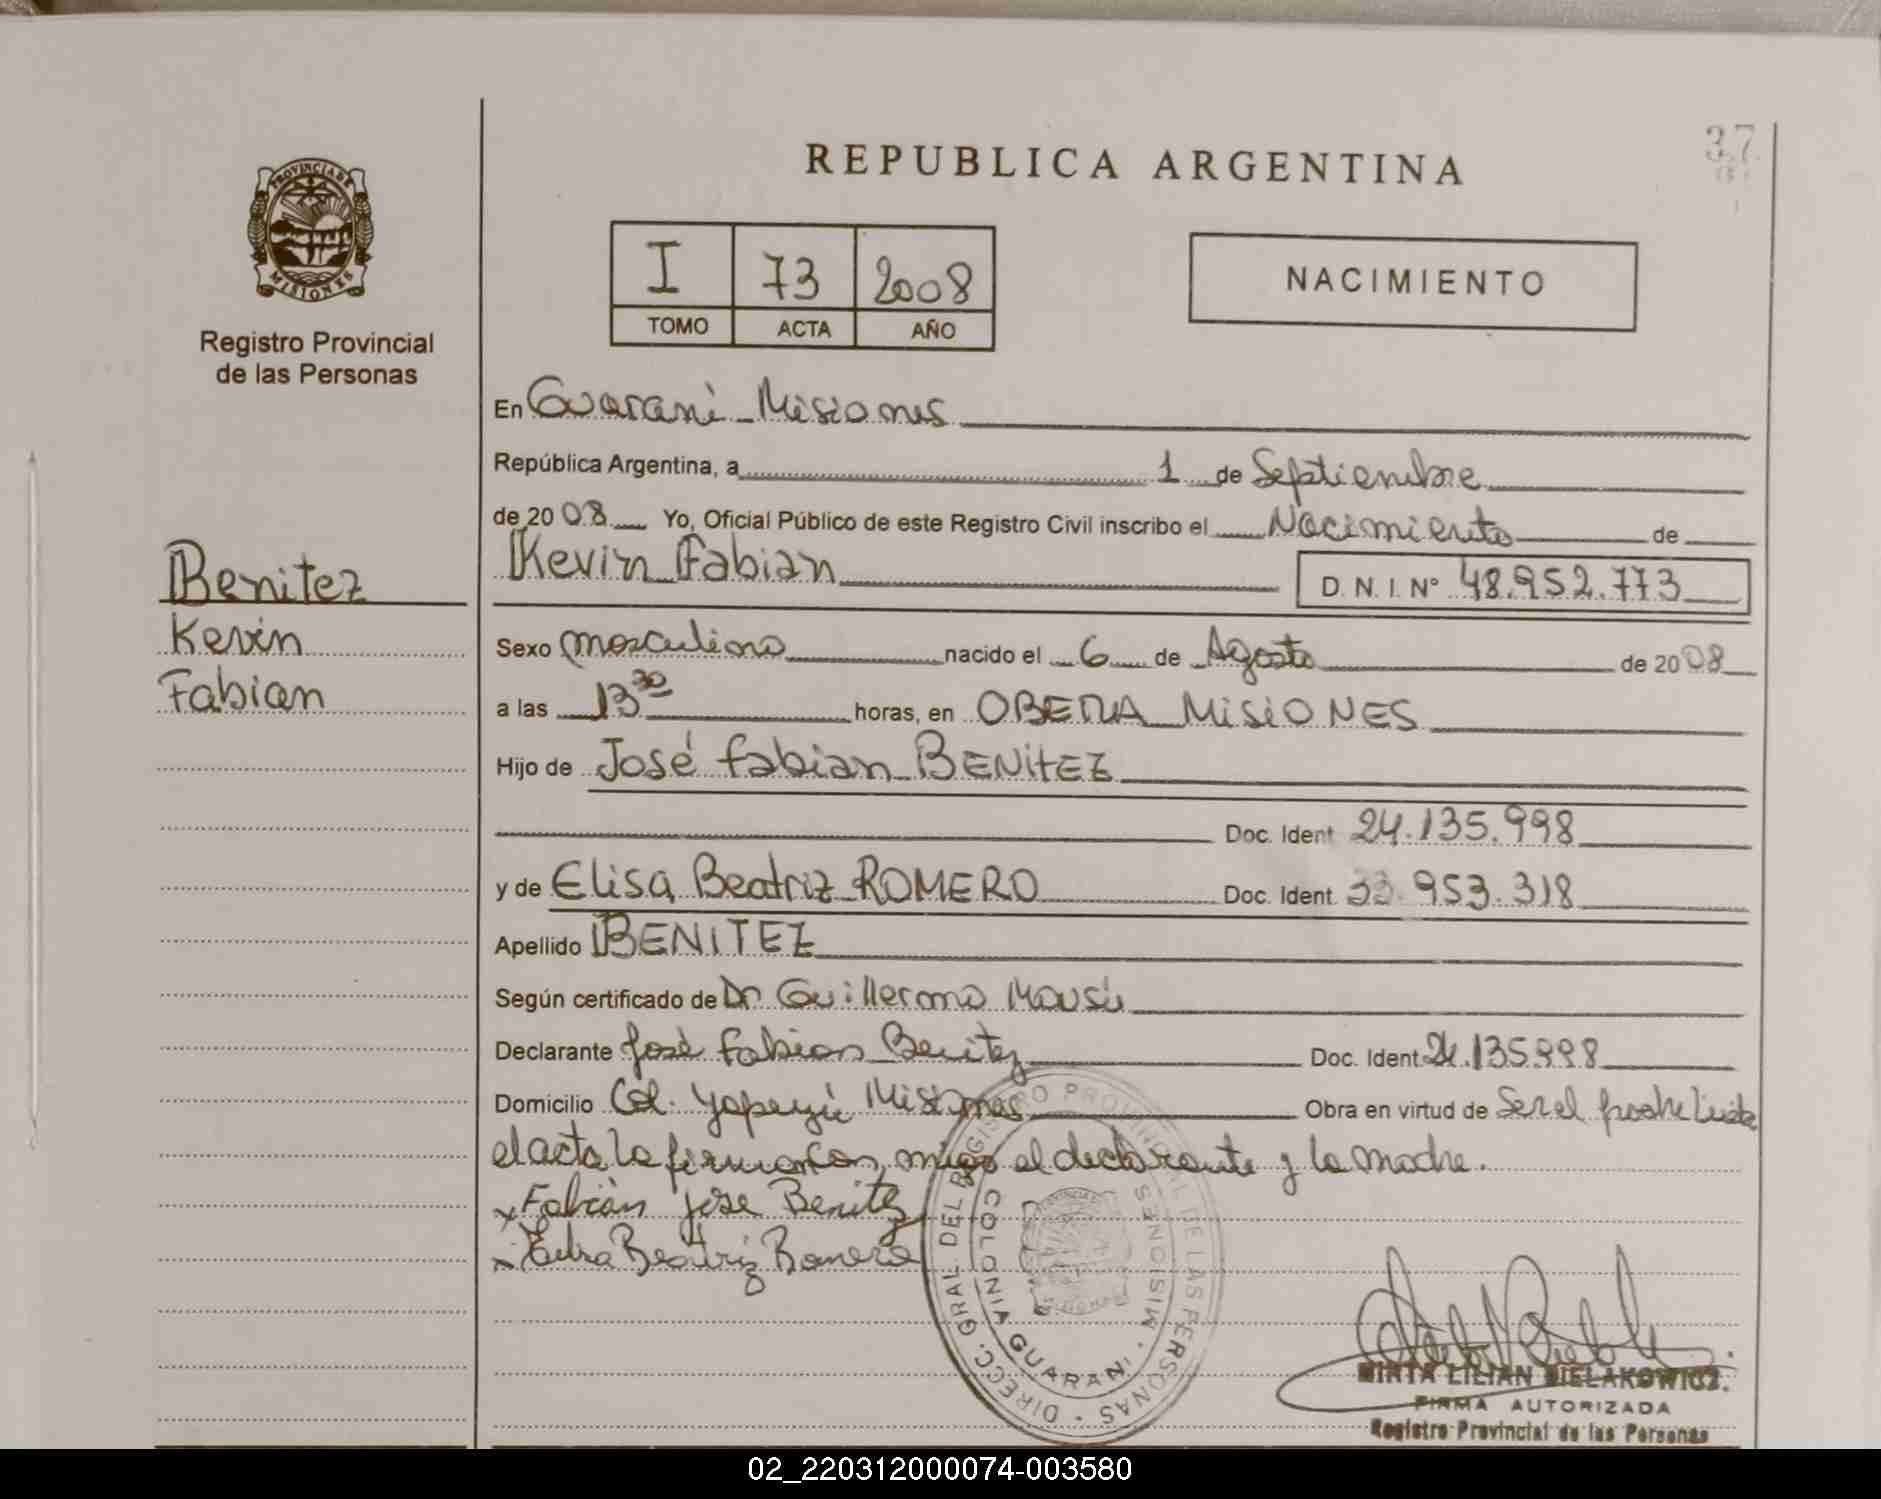 REPUBLICA ARGENTINA
37
PROVINCIA DE
MISIONES
Registro Provincial
de las Personas
I 73 2008
TOMO ACTA AÑO
NACIMIENTO
En Guaraní - Misiones
República Argentina, a 1 de Septiembre
de 2008 Yo, Oficial Público de este Registro Civil inscribo el Nacimiento de
Kevin Fabian
D.N.I. Nº 48.952.773
Benitez
Kevin
Fabian
Sexo masculino nacido el 6 de Agosto de 2008
a las 13 30 horas, en OBERA MISIONES
Hijo de José fabian BENITEZ
Doc. Ident 24.135.998
y de Elisa Beatriz ROMERO Doc. Ident. 33.953.318
Apellido BENITEZ
Según certificado de Dr Guillermo
Declarante José Fabian Benitez Doc. Ident. 24.135.998
Domicilio Col. Yapeyú Misiones Obra en virtud de Ser el padre
el acta la firman conmigo el declarante y la madre.
x Fabián jose Benitez
x Beatriz Romero
DIRECC. GRAL. DEL REGISTRO PROVINCIAL DE LAS PERSONAS
COLONIA GUARANI - MISIONES
MIRTA LILIAN BIELAKOWICZ
FIRMA AUTORIZADA
Registro Provincial de las Personas
02_220312000074-003580